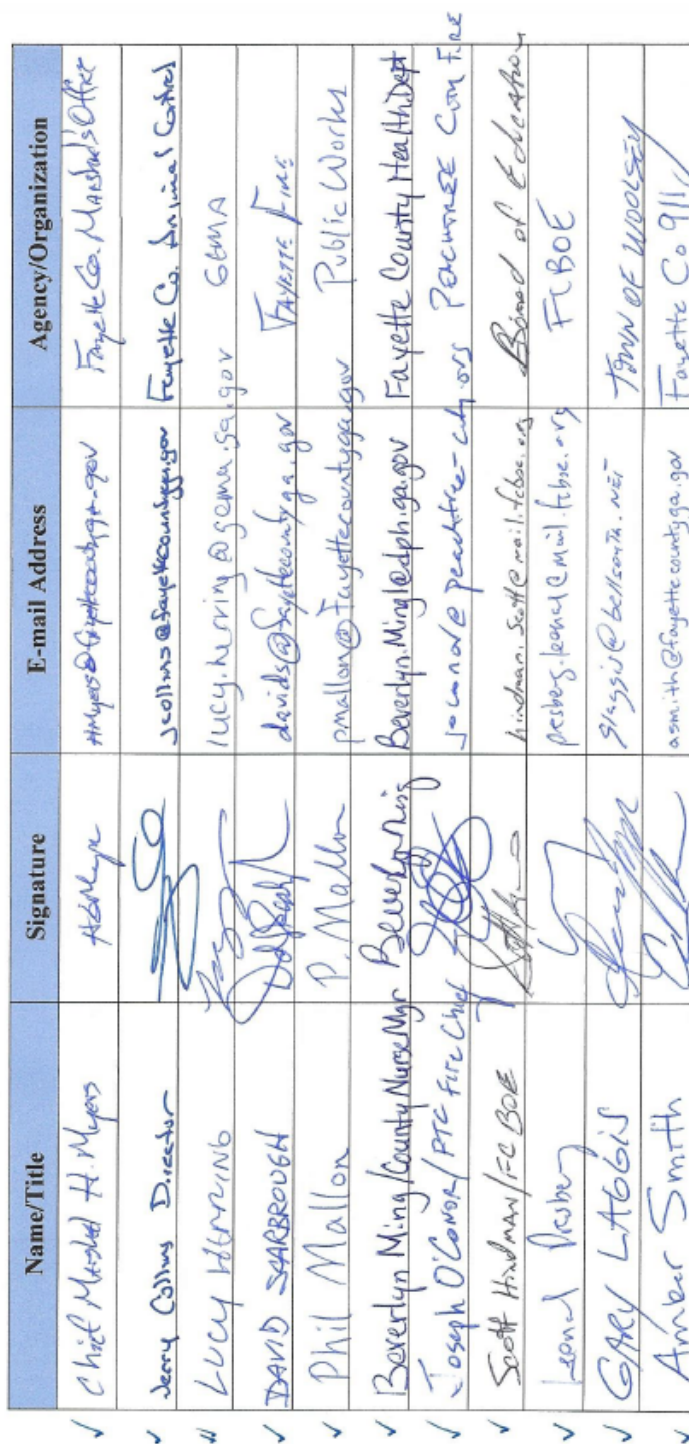 Name/Title Signature E-mail Address Agency/Organization
✓ Chief Marshal H. Myers HMyers@fayettecountyga.gov Fayette Co. Marshal's Office
✓ Jerry Collins Director jcollins@fayettecountyga.gov Fayette Co. Animal Control
LUCY HERRING lucy.herring@gema.ga.gov GEMA
✓ DAVID SCARBROUGH davids@fayettecountyga.gov FAYETTE FIRE
✓ Phil Mallon P. Mallon pmallon@fayettecountyga.gov Public Works
✓ Beverlyn Ming/County Nurse Mgr Beverlyn Ming Beverlyn.Ming1@dph.ga.gov Fayette County Health Dept
✓ Joseph O'CONOR/PTC Fire Chief joconor@peachtree-city.org PEACHTREE CITY FIRE
✓ Scott Hindman/FC BOE hindman.scott@mail.fcboe.org Board of Education
✓ Presberg presberg.leonard@mail.fcboe.org FCBOE
✓ GARY LAGGIS glaggis@bellsouth.NET TOWN OF WOOLSEY
✓ Amber Smith asmith@fayettecountyga.gov Fayette Co 911